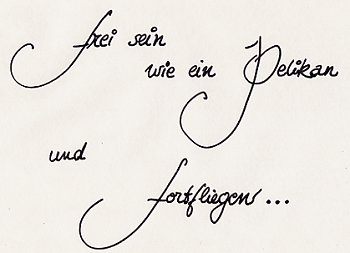 frei sein
wie ein Pelikan
und
fortfliegen...